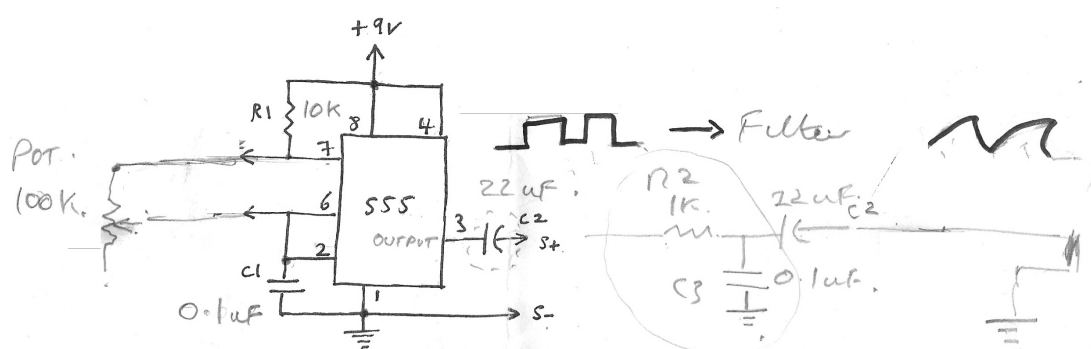 +9V
R1 10K
8 4
7
POT.
100K.
6
555
2
OUTPUT
3
22uF.
C2
S+
C1
0.1uF
1
S-
Filter
R2
1K
22uF
C2
C3
0.1uF.